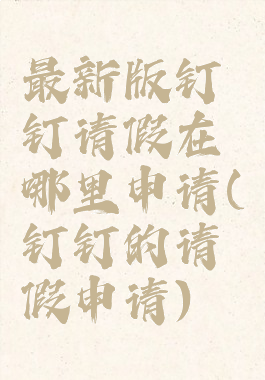 最新版钉
钉请假在
哪里申请(
钉钉的请
假申请)